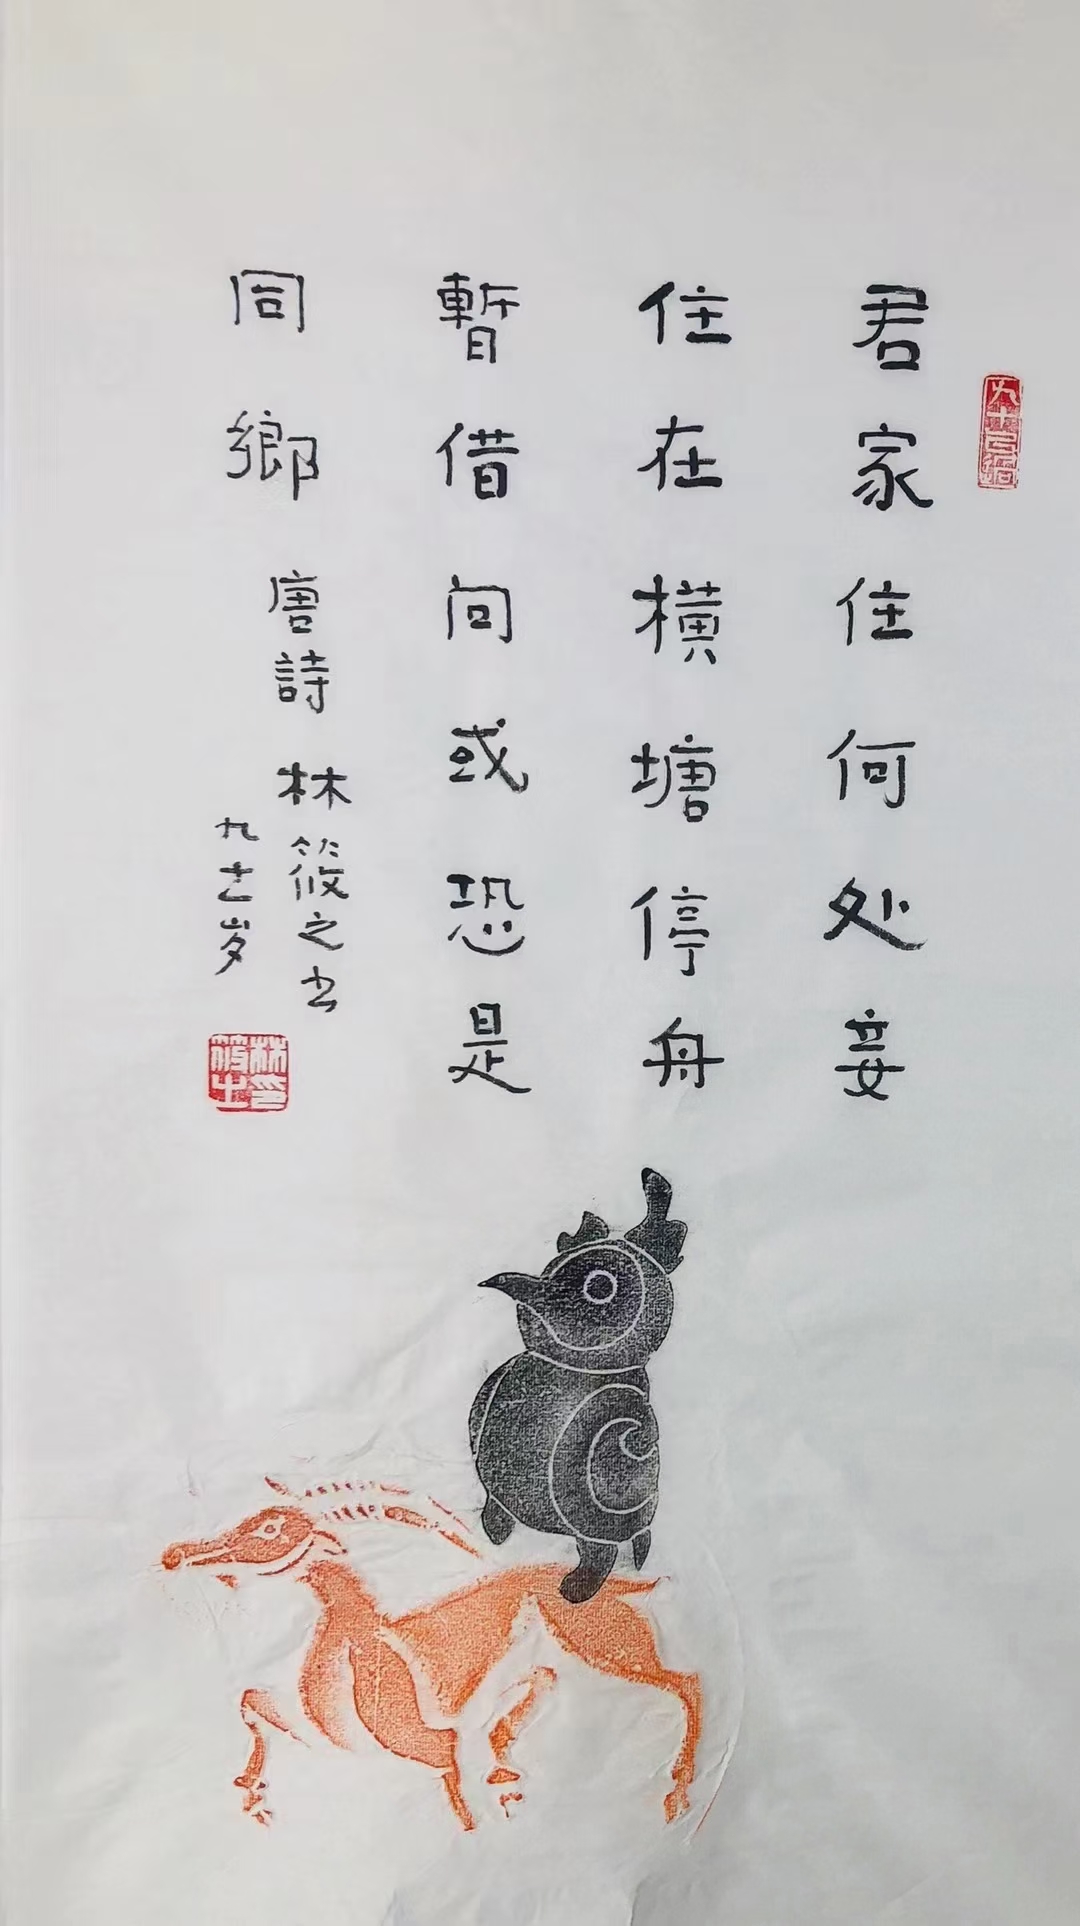 君家住何处妾
住在横塘停舟
暫借问或恐是
同鄉
唐詩 林筱之书
九十七岁
林筱之印